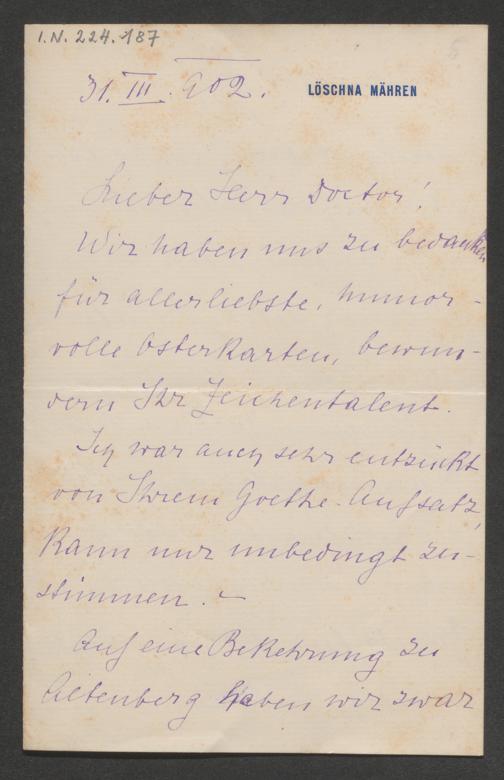 I.N. 224.187
31. III. 902.
LÖSCHNA MÄHREN
Lieber Herr Doctor!
Wir haben uns zu bedanken
für allerliebste, humor-
volle Osterkarten, bewun-
dern Ihr Zeichentalent.
Ich war auch sehr entzückt
von Ihrem Goethe-Aufsatz,
kann nur unbedingt zu-
stimmen. –
Auf eine Bekehrung zu
Altenberg haben wir zwar